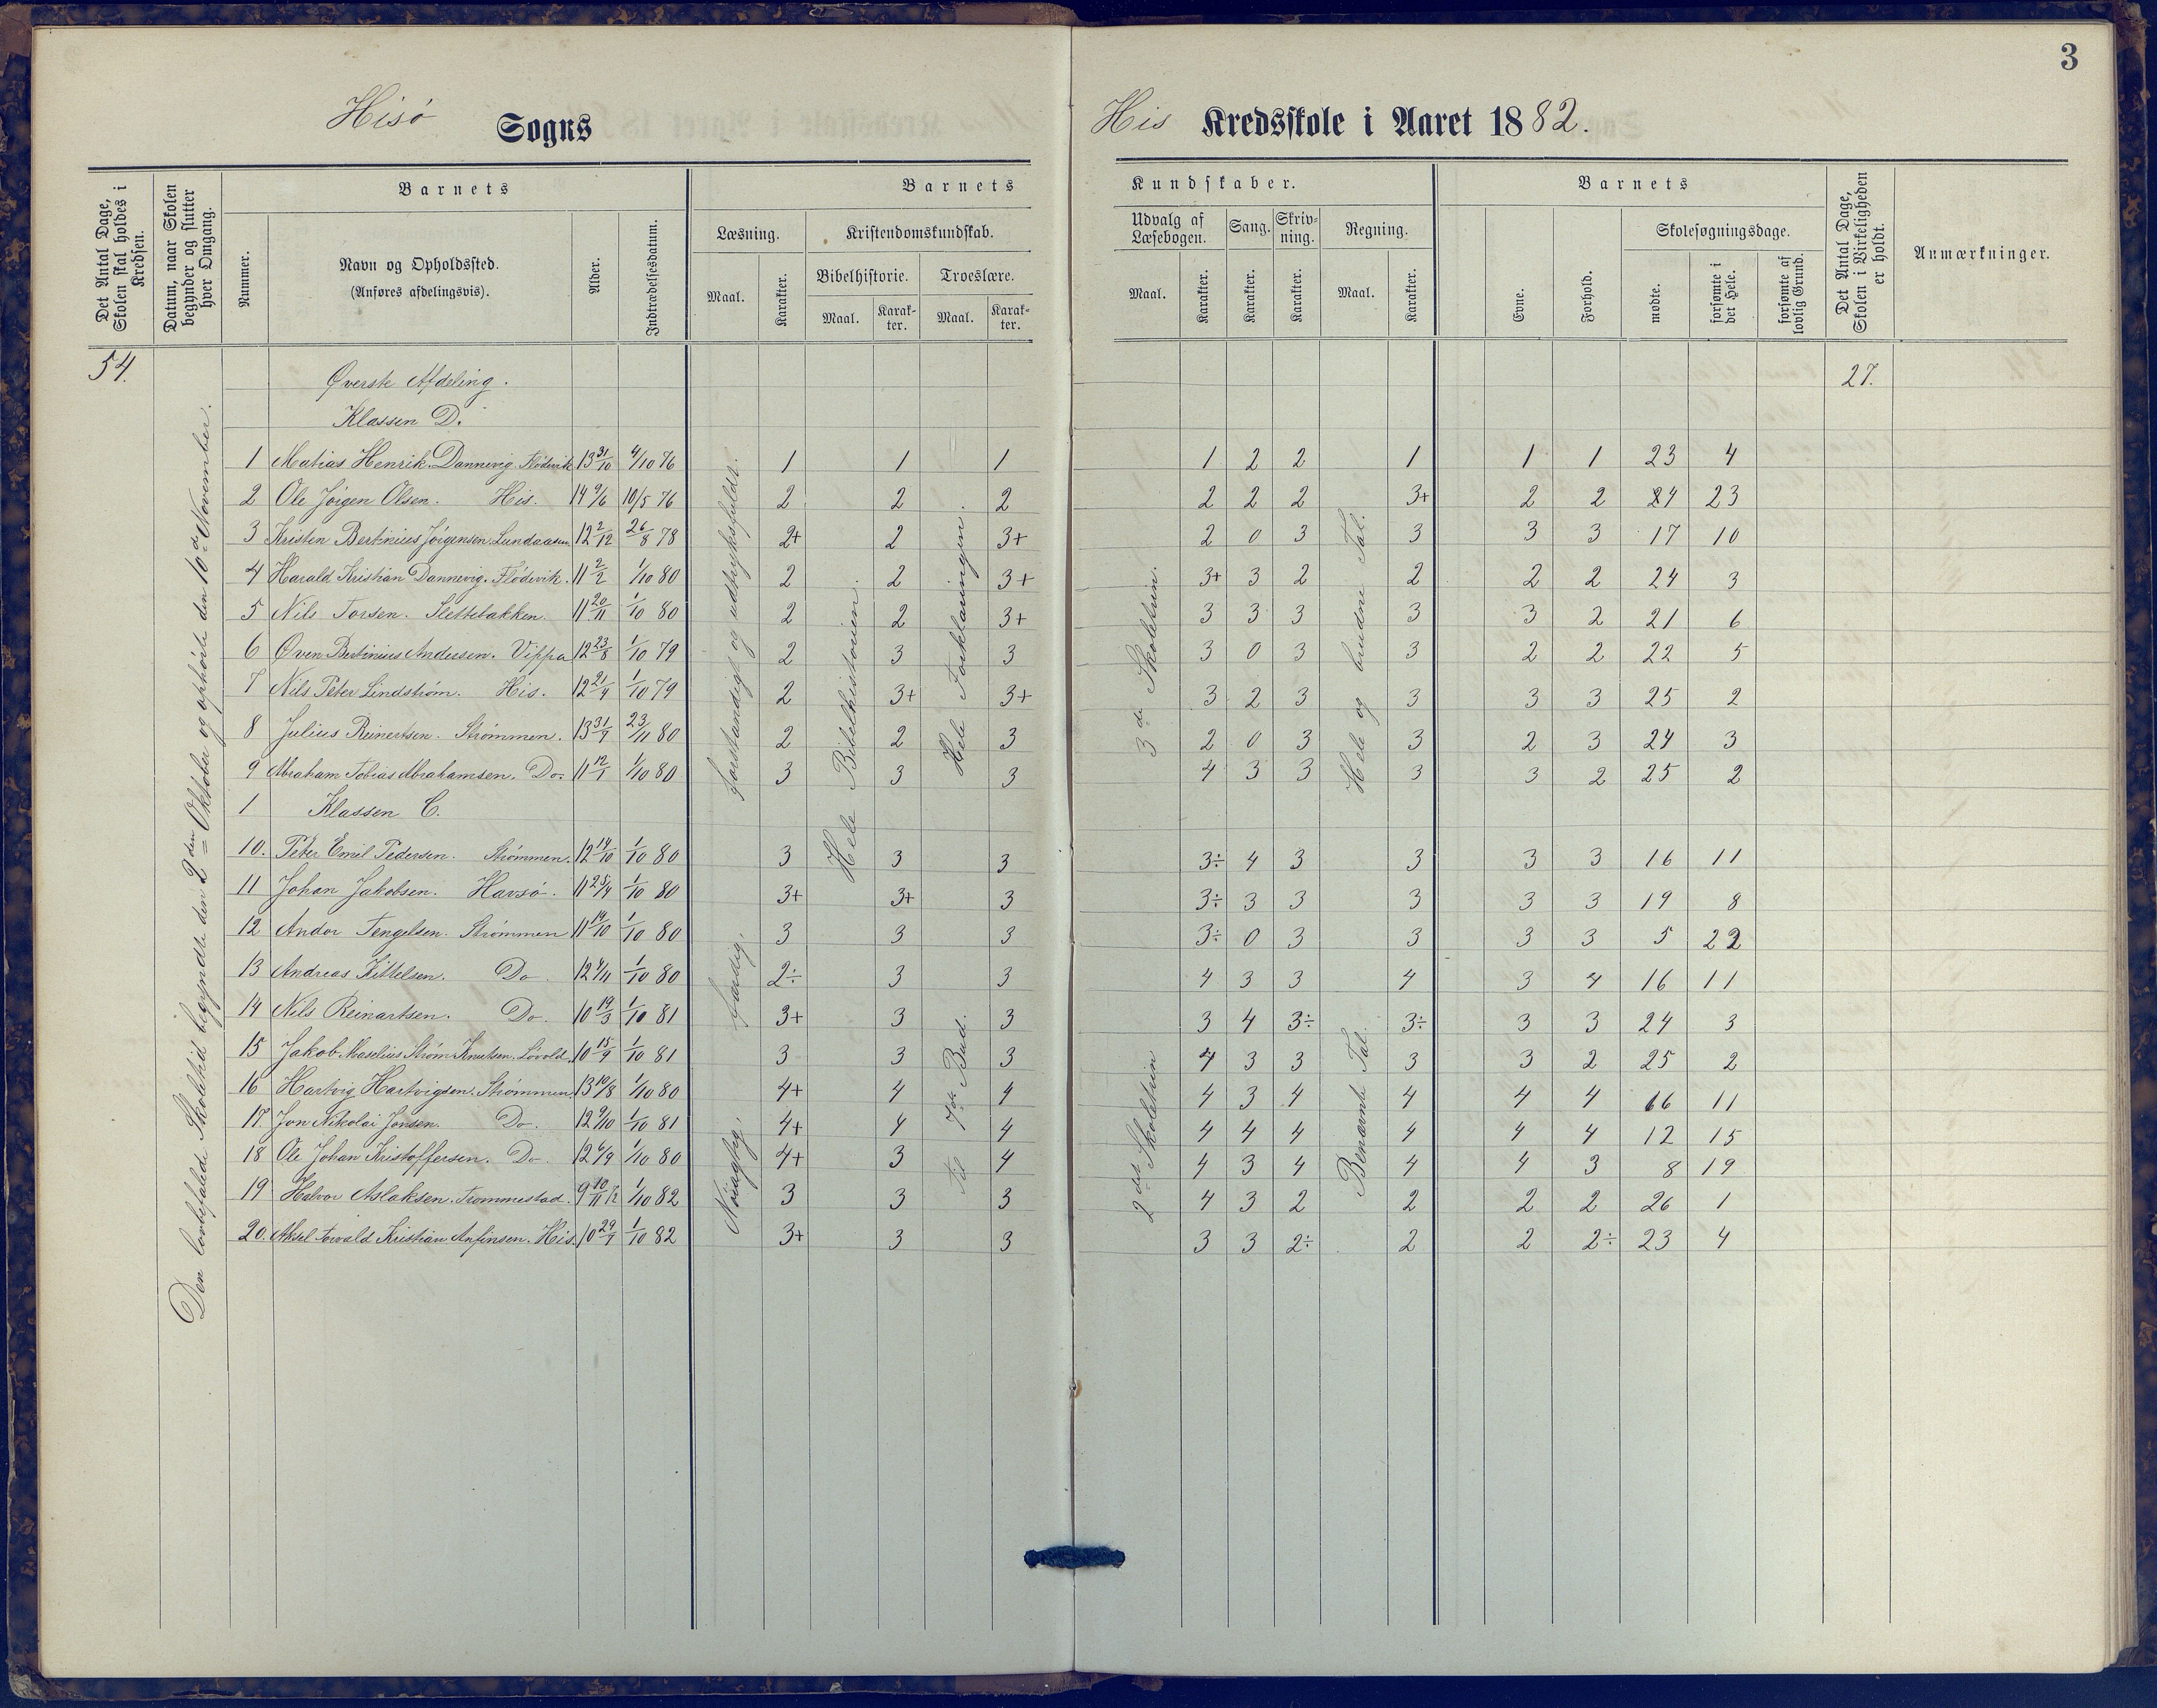 3
Hisö Sogns His Kredsskole i Aaret 1882.
Det Antal Dage, Skolen skal holdes i Kredsen.
Datum, naar Skolen begynder og slutter hver Omgang.
Barnets
Nummer.
Navn og Opholdssted.
(Anføres afdelingsvis).
Alder.
Indtrædelsesdatum.
Barnets Kundskaber.
Læsning.
Maal.
Karakter.
Kristendomskundskab.
Bibelhistorie.
Maal.
Karak-
ter.
Troeslære.
Maal.
Karak-
ter.
Udvalg af
Læsebogen.
Maal.
Karakter.
Sang.
Karakter.
Skriv-
ning.
Karakter.
Regning.
Maal.
Karakter.
Barnets
Evne.
Forhold.
Skolesøgningsdage.
mødte.
forsømte i det Hele.
forsømte af lovlig Grund.
Det Antal Dage, Skolen i Virkeligheden er holdt.
Anmærkninger.
54.
27.
Den lovbefalede Skoletid begyndte den 2den Oktober og ophörte den 10de November.
Øverste Afdeling.
Klassen D.
1 Matias Henrik Dannevig. Flödevik 13 31/10 4/10 76 1 1 1 1 2 2 1 1 1 23 4
2 Ole Jörgen Olsen. His. 14 9/6 10/5 76 2 2 2 2 2 2 3+ 2 2 24 23
3 Kristen Bertinius Jörgensen. Lundaasen 12 2/12 26/8 78 2+ 2 3+ 2 0 3 3 3 3 17 10
4 Harald Kristian Dannevig. Flödevik. 11 2/2 1/10 80 2 2 3+ 3+ 3 2 2 2 2 24 3
5 Nils Torsen. Slettebakken. 11 20/11 1/10 80 2 2 3+ 3 3 3 3 3 2 21 6
6 Øven Bertinius Andersen. Vippa 12 23/8 1/10 79 2 3 3 3 0 3 3 2 2 22 5
7 Nils Peter Lindström. His. 12 21/4 1/10 79 2 3+ 3+ 3 2 3 3 3 3 25 2
8 Julius Reinertsen. Strömmen. 13 31/7 23/11 80 2 2 3 2 0 3 3 2 3 24 3
9 Abraham Tobias Abrahamsen. Do. 11 12/1 1/10 80 3 3 3 4 3 3 3 3 2 25 2
1 Klassen C.
10. Peter Emil Pedersen. Strömmen. 12 14/10 1/10 80 3 3 3 3÷ 4 3 3 3 3 16 11
11 Johan Jakobsen. Havsö. 11 25/4 1/10 80 3+ 3+ 3 3÷ 3 3 3 3 3 19 8
12 Andor Tengelsen. Strömmen 11 14/10 1/10 80 3 3 3 3÷ 0 3 3 3 3 5 22
13 Andreas Kittelsen. Do 12 4/11 1/10 80 2÷ 3 3 4 3 3 4 3 4 16 11
14 Nils Reinartsen. Do. 10 19/3 1/10 81 3+ 3 3 3 4 3÷ 3÷ 3 3 24 3
15 Jakob Maselius Ström Knutsen. Lövold. 10 15/9 1/10 81 3 3 3 4 3 3 3 3 2 25 2
16 Hartvig Hartvigsen. Strömmen. 13 10/8 1/10 80 4+ 4 4 4 3 4 4 4 4 16 11
17. Jon Nikolai Jonsen. Do. 12 9/10 1/10 81 4+ 4 4 4 4 4 4 4 4 12 15
18 Ole Johan Kristoffersen. Do 12 6/9 1/10 80 4+ 3 4 4 3 4 4 4 3 8 19
19 Halvor Aslaksen. Trommestad. 9 10/11 1/10 82 3 3 3 4 3 2 2 2 2 26 1
20. Aksel Torvald Kristian Anfinsen. His. 10 29/7 1/10 82 3+ 3 3 3 3 2÷ 2 2 2÷ 23 4
Forstandigt og udtryksfuldt.
Færdig.
Nöiagtig.
Hele Bibelhistorien.
Hele Forklaringen.
Til 7de Bud.
3de Skoletrin.
2det Skoletrin
Hele og brudne Tal.
Benævnte Tal.